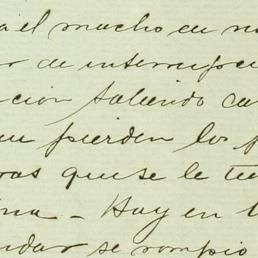 a el macho en no
or de interrupci
cion saliendo ca
pierden los p
ras que se le
ina - Hay en l
ndar se rompio